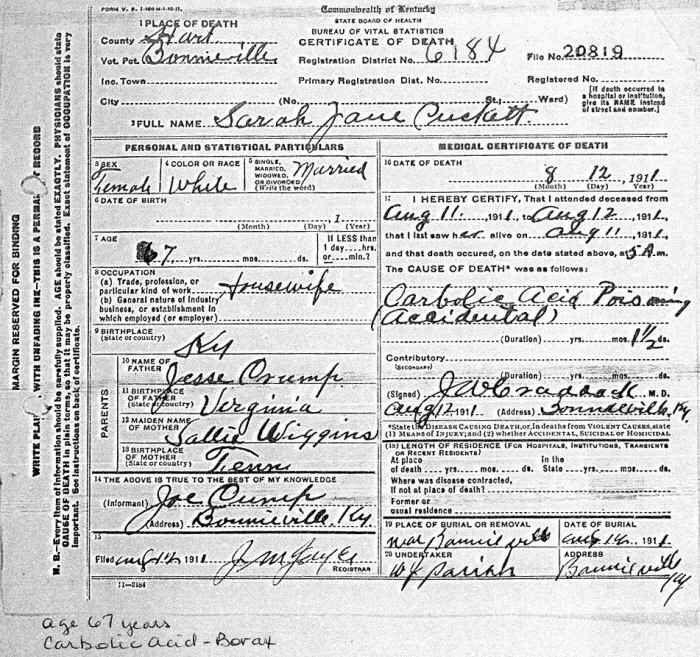 FORM V. S. 1-
Commonwealth of Kentucky
STATE BOARD OF HEALTH
BUREAU OF VITAL STATISTICS
CERTIFICATE OF DEATH
1 PLACE OF DEATH
County Hart
Vot. Pct. Bonnieville
Registration District No. 6184
File No. 20819
Inc. Town
Primary Registration Dist. No.
Registered No.
City (No. St.; Ward)
[If death occurred in a hospital or institution, give its NAME instead of street and number.]
2 FULL NAME Sarah Jane Puckett
PERSONAL AND STATISTICAL PARTICULARS
3 SEX
Female
4 COLOR OR RACE
White
5 SINGLE, MARRIED, WIDOWED, OR DIVORCED (Write the word)
Married
6 DATE OF BIRTH
, 1
(Month) (Day) (Year)
7 AGE
67 yrs. mos. ds.
If LESS than 1 day hrs. or min.?
8 OCCUPATION
(a) Trade, profession, or particular kind of work Housewife
(b) General nature of industry business, or establishment in which employed (or employer)
9 BIRTHPLACE
(State or country) Ky
PARENTS
10 NAME OF FATHER
Jesse Crump
11 BIRTHPLACE OF FATHER
(State or country) Virginia
12 MAIDEN NAME OF MOTHER
Sallie Wiggins
13 BIRTHPLACE OF MOTHER
(State or country) Tenn
14 THE ABOVE IS TRUE TO THE BEST OF MY KNOWLEDGE
(Informant) Joe Cump
(Address) Bonnieville Ky.
15
Filed Aug 12 1911 J. M. REGISTRAR
11-2184
MEDICAL CERTIFICATE OF DEATH
16 DATE OF DEATH
8 12, 1911
(Month) (Day) (Year)
17 I HEREBY CERTIFY, That I attended deceased from
Aug 11 1911, to Aug 12 1911,
that I last saw her alive on Aug 11 1911,
and that death occured, on the date stated above, at 5 A m.
The CAUSE OF DEATH* was as follows:
Carbolic Acid Poisoning
(Accidental)
(Duration) yrs. mos. 1½ ds.
Contributory
(SECONDARY)
(Duration) yrs. mos. ds.
(Signed) J W Craddock M. D.
Aug 12 1911 (Address) Bonnieville, Ky.
*State the DISEASE CAUSING DEATH, or, in deaths from VIOLENT CAUSES, state (1) MEANS OF INJURY; and (2) whether ACCIDENTAL, SUICIDAL or HOMICIDAL
(18) LENGTH OF RESIDENCE (FOR HOSPITALS, INSTITUTIONS, TRANSIENTS OR RECENT RESIDENTS)
At place of death yrs. mos. ds. In the State yrs. mos. ds.
Where was disease contracted, If not at place of death?
Former or usual residence
19 PLACE OF BURIAL OR REMOVAL
near Bonnieville
DATE OF BURIAL
Aug 12, 1911
20 UNDERTAKER
W J Parish
ADDRESS
Bonnieville Ky
MARGIN RESERVED FOR BINDING
WRITE PLAIN , WITH UNFADING INK—THIS IS A PERMA T RECORD
N. B.—Every item of information should be carefully supplied. AGE should be stated EXACTLY. PHYSICIANS should state
CAUSE OF DEATH in plain terms, so that it may be properly classified. Exact statement of OCCUPATION is very
important. See instructions on back of certificate.
age 67 years
Carbolic Acid - Borax